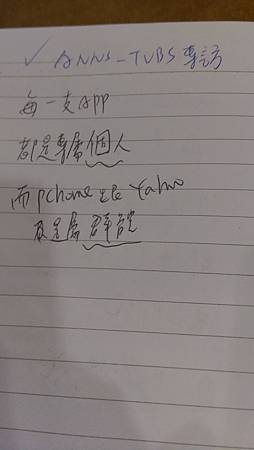 ✓ ANNS-TVBS 專訪
每一支APP
都是專屬個人
而pchome或Yahoo
只是屬群體